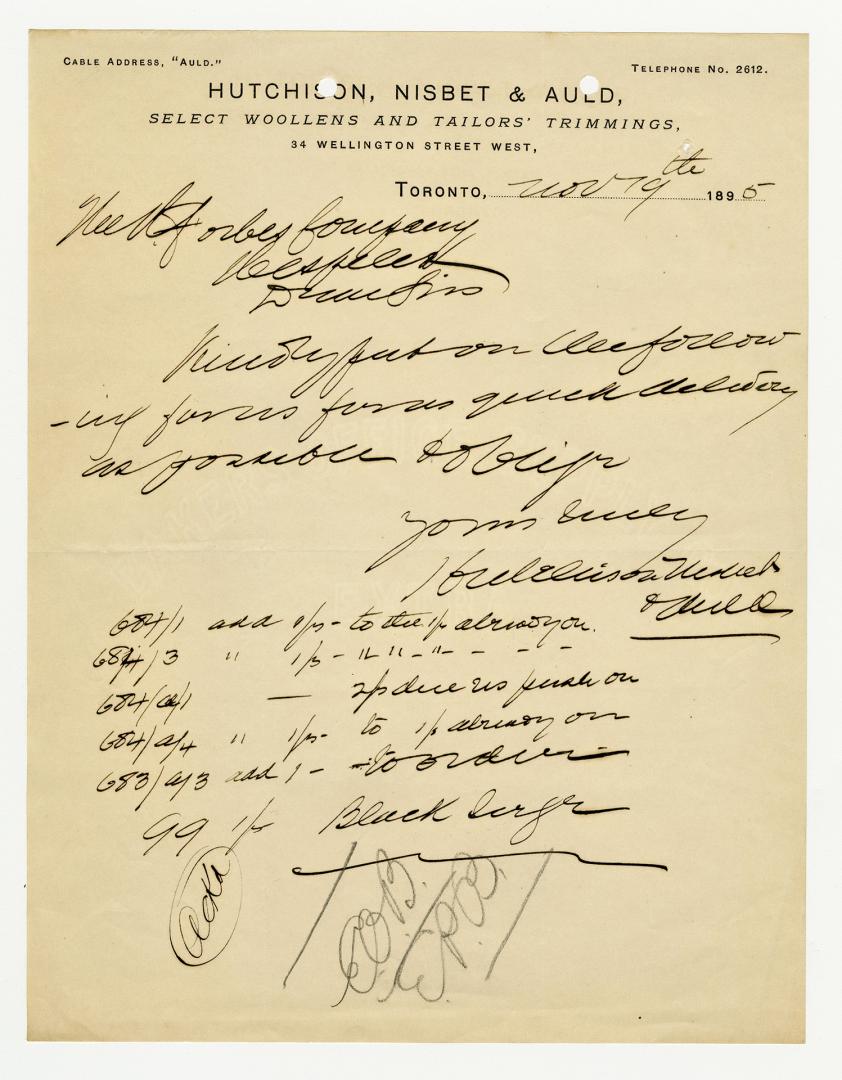 CABLE ADDRESS, "AULD."
TELEPHONE NO. 2612.
HUTCHISON, NISBET & AULD,
SELECT WOOLLENS AND TAILORS' TRIMMINGS,
34 WELLINGTON STREET WEST,
TORONTO, Nov 19th 1895
The R. Forbes Company
Hespeler
Dear Sirs
Kindly put on the follow
-ing for us quick delivery
as possible & oblige
Yours truly
Hutchison Nisbet
& Auld
684/1 add 1/ps - to the 1/p already on.
684/3 " 1/ps - " " " - - - -
684/a/1 — 2/ps on
684/a/4 " 1/ps - to 1/p already on
683/a/3 add 1 - to order
99 1/p Black Serge
Ackd
E.P.B.